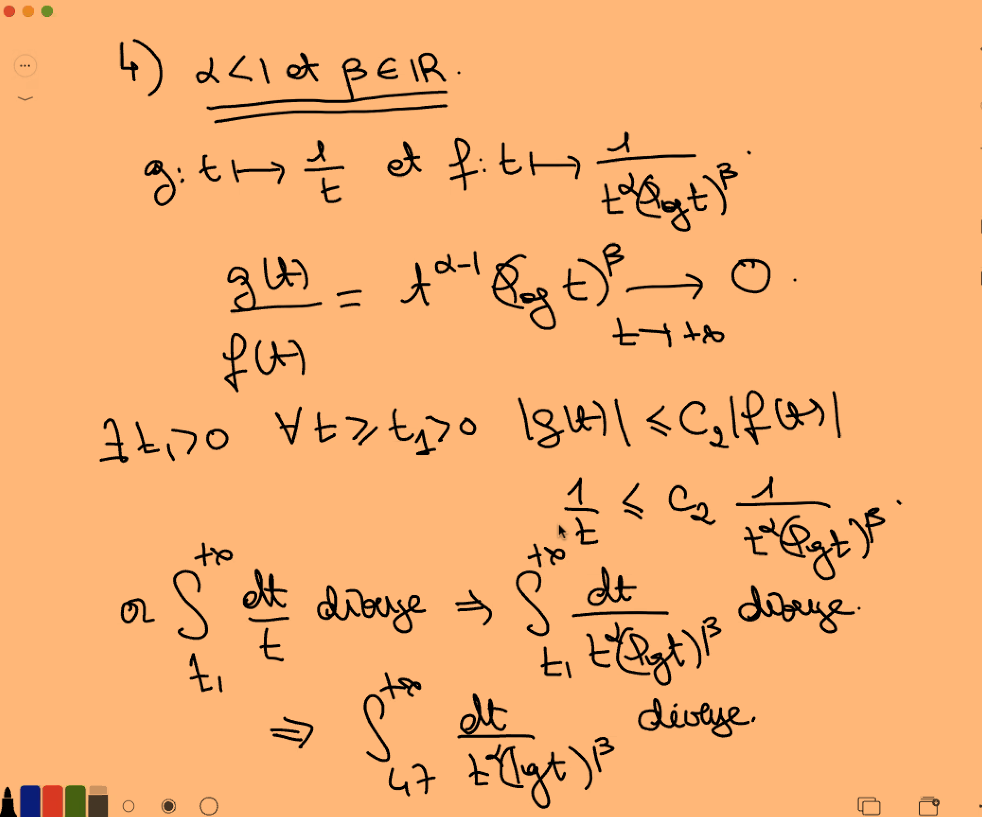 4) α<1 et β∈ℝ.
g: t ↦ 1/t et f: t ↦ 1/(t^α(log t)^β).
g(t)/f(t) = t^(α-1) (log t)^β ⟶_(t→+∞) 0.
∃ t₁>0 ∀ t ⩾ t₁>0 |g(t)| ⩽ C₂|f(t)|
1/t ⩽ C₂ 1/(t^α(log t)^β).
or ∫_(t₁)^(+∞) dt/t diverge ⇒ ∫_(t₁)^(+∞) dt/(t^α(log t)^β) diverge.
⇒ ∫_(47)^(+∞) dt/(t^α(log t)^β) diverge.